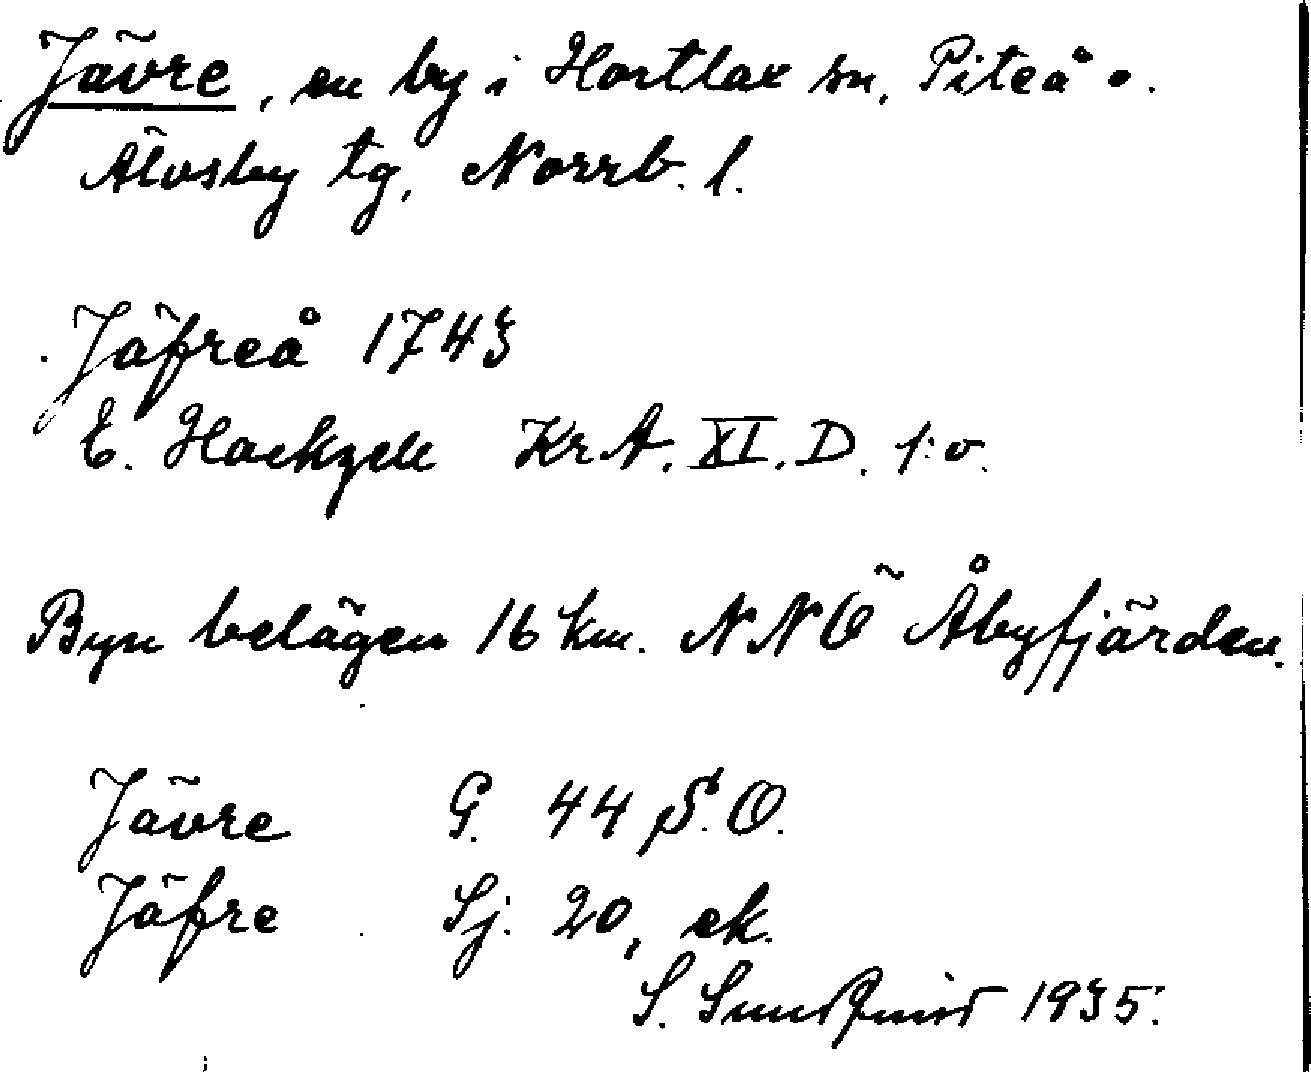 Jävre, en by i Hortlax sn, Piteå o.
Älvsby tg, Norrb. l.
Jäfreå 1743
E. Hackzell KrA. XI. D. 1:o.
Byn belägen 16 km. NNÖ Åbyfjärden.
Jävre G. 44 S.O.
Jäfre Sj. 20, ek.
S. Sundquist 1935.